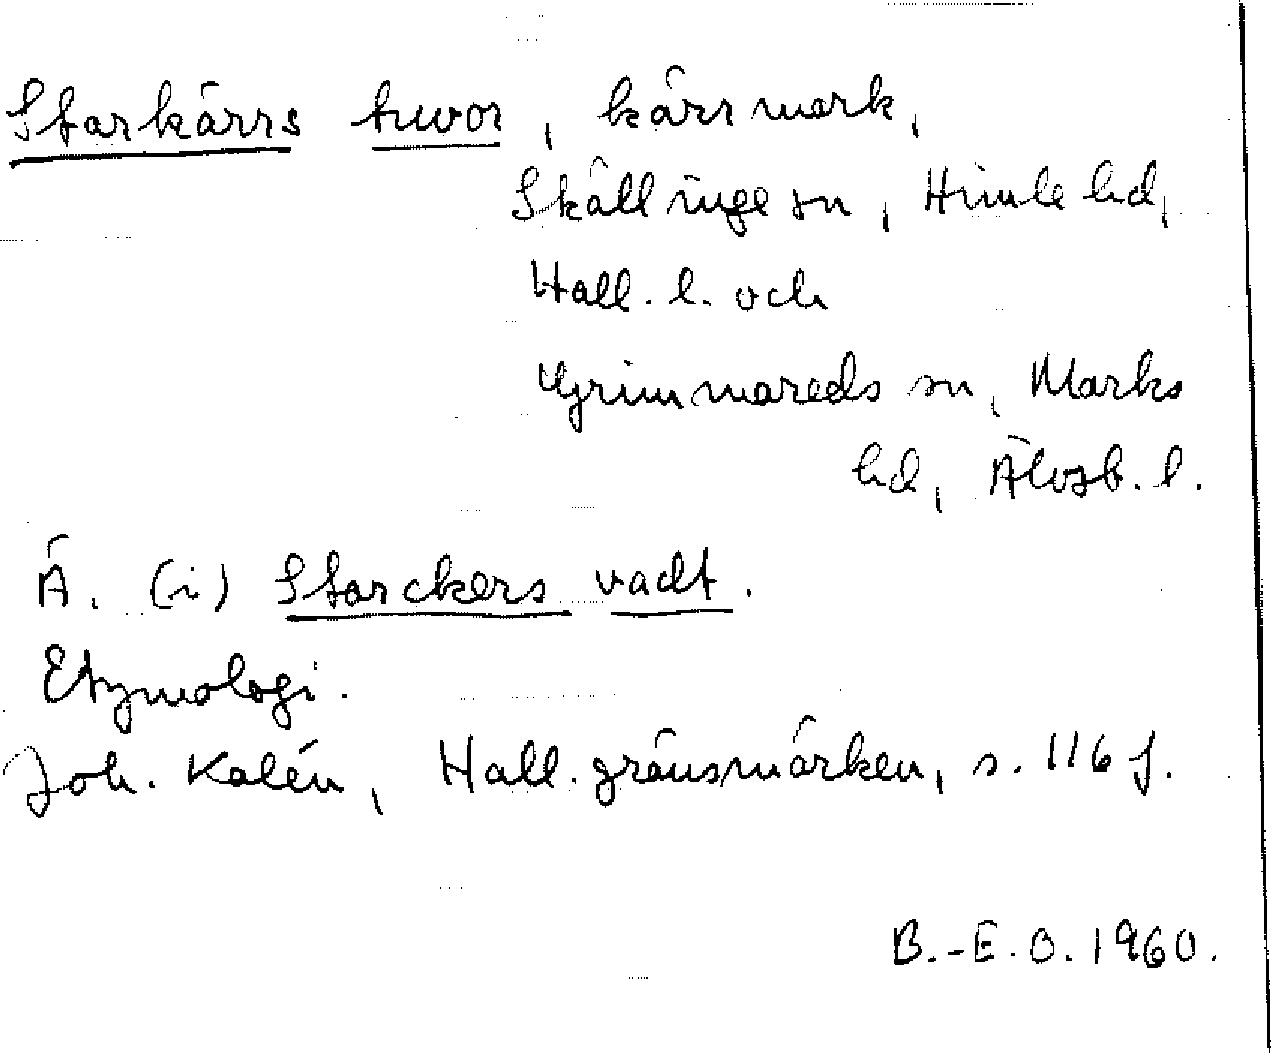 Starkärrs tuvor, kärrmark,
Skällinge sn, Himle hd,
Hall. l. och
Grimmareds sn, Marks
hd, Älvsb. l.
Ä. (i) Starckers vadt.
Etymologi.
Joh. Kalén, Hall. gränsmärken, s. 116 f.
B.-E.O. 1960.